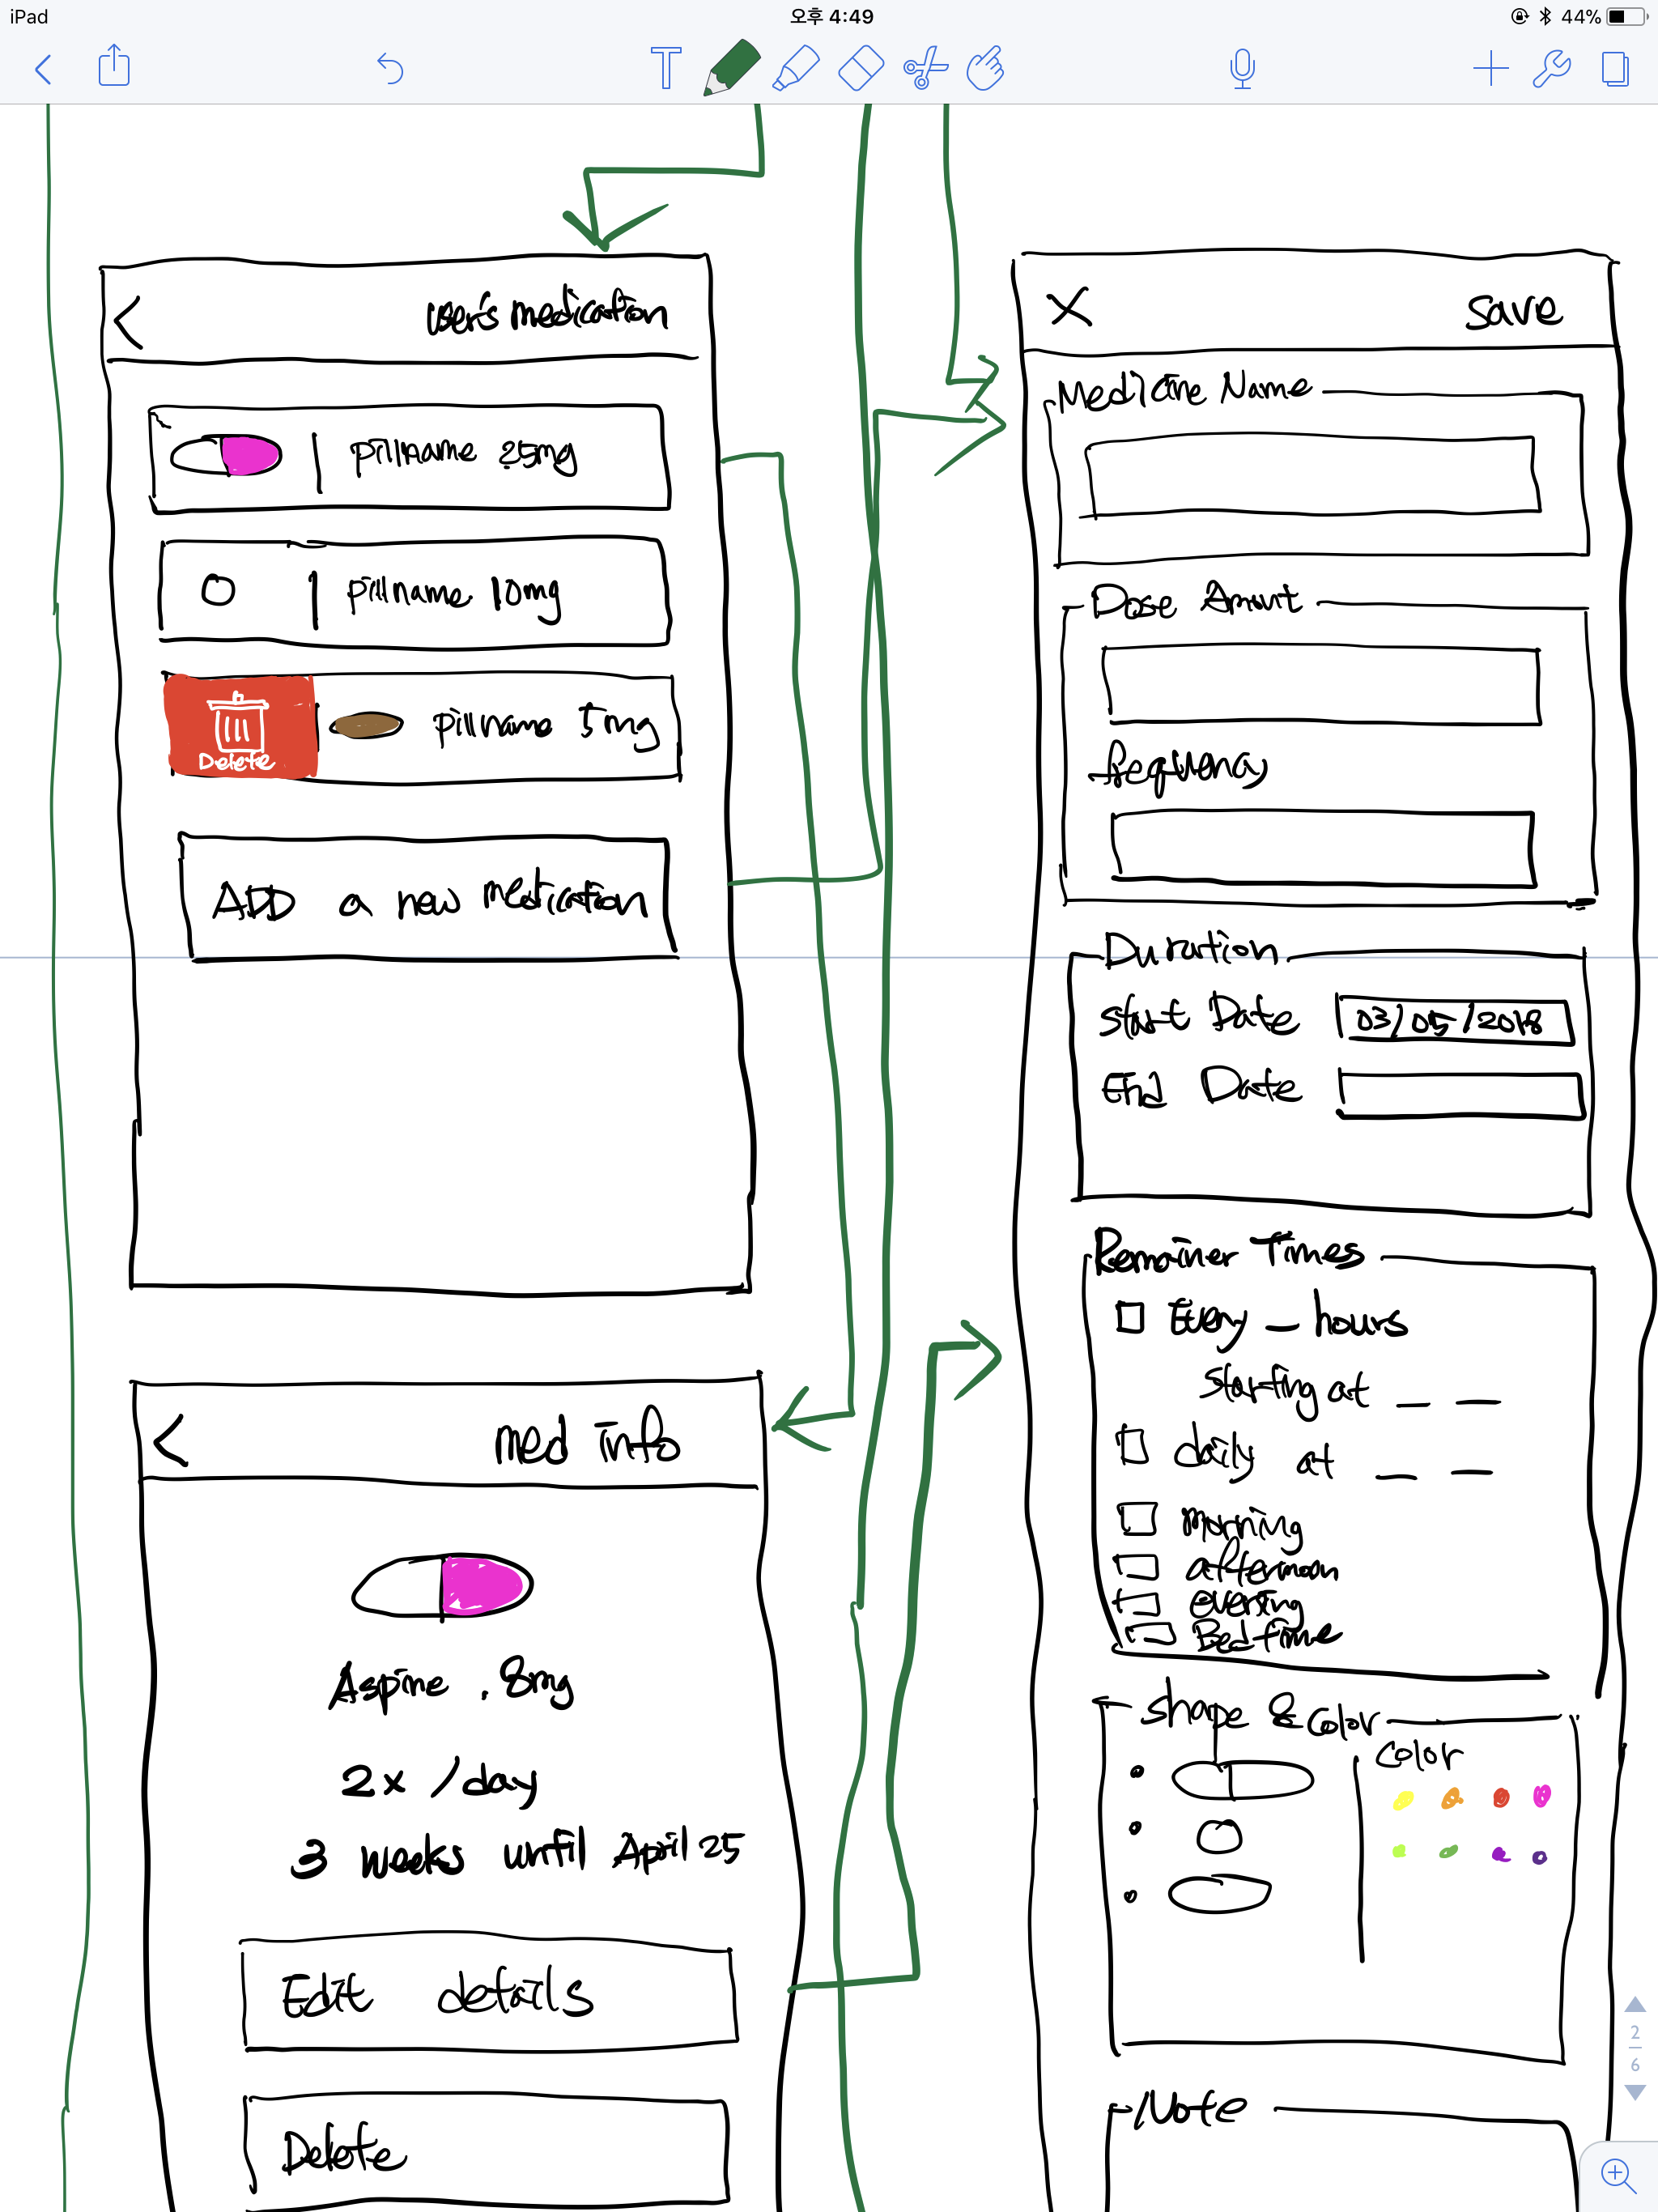 iPad
오후 4:49
44%
user's medication
pillname 25mg
pillname 10mg
Delete
pillname 5mg
ADD a new medication
med info
Aspine .8mg
2x /day
3 weeks until April 25
Edit details
Delete
X
Save
Medicine Name
Dose Amount
frequency
Duration
Start Date
03/05/2018
End Date
Remainer Times
Every _ hours
starting at _ _
daily at _ _
morning
afternoon
evening
Bedtime
shape & color
color
Note
2
6